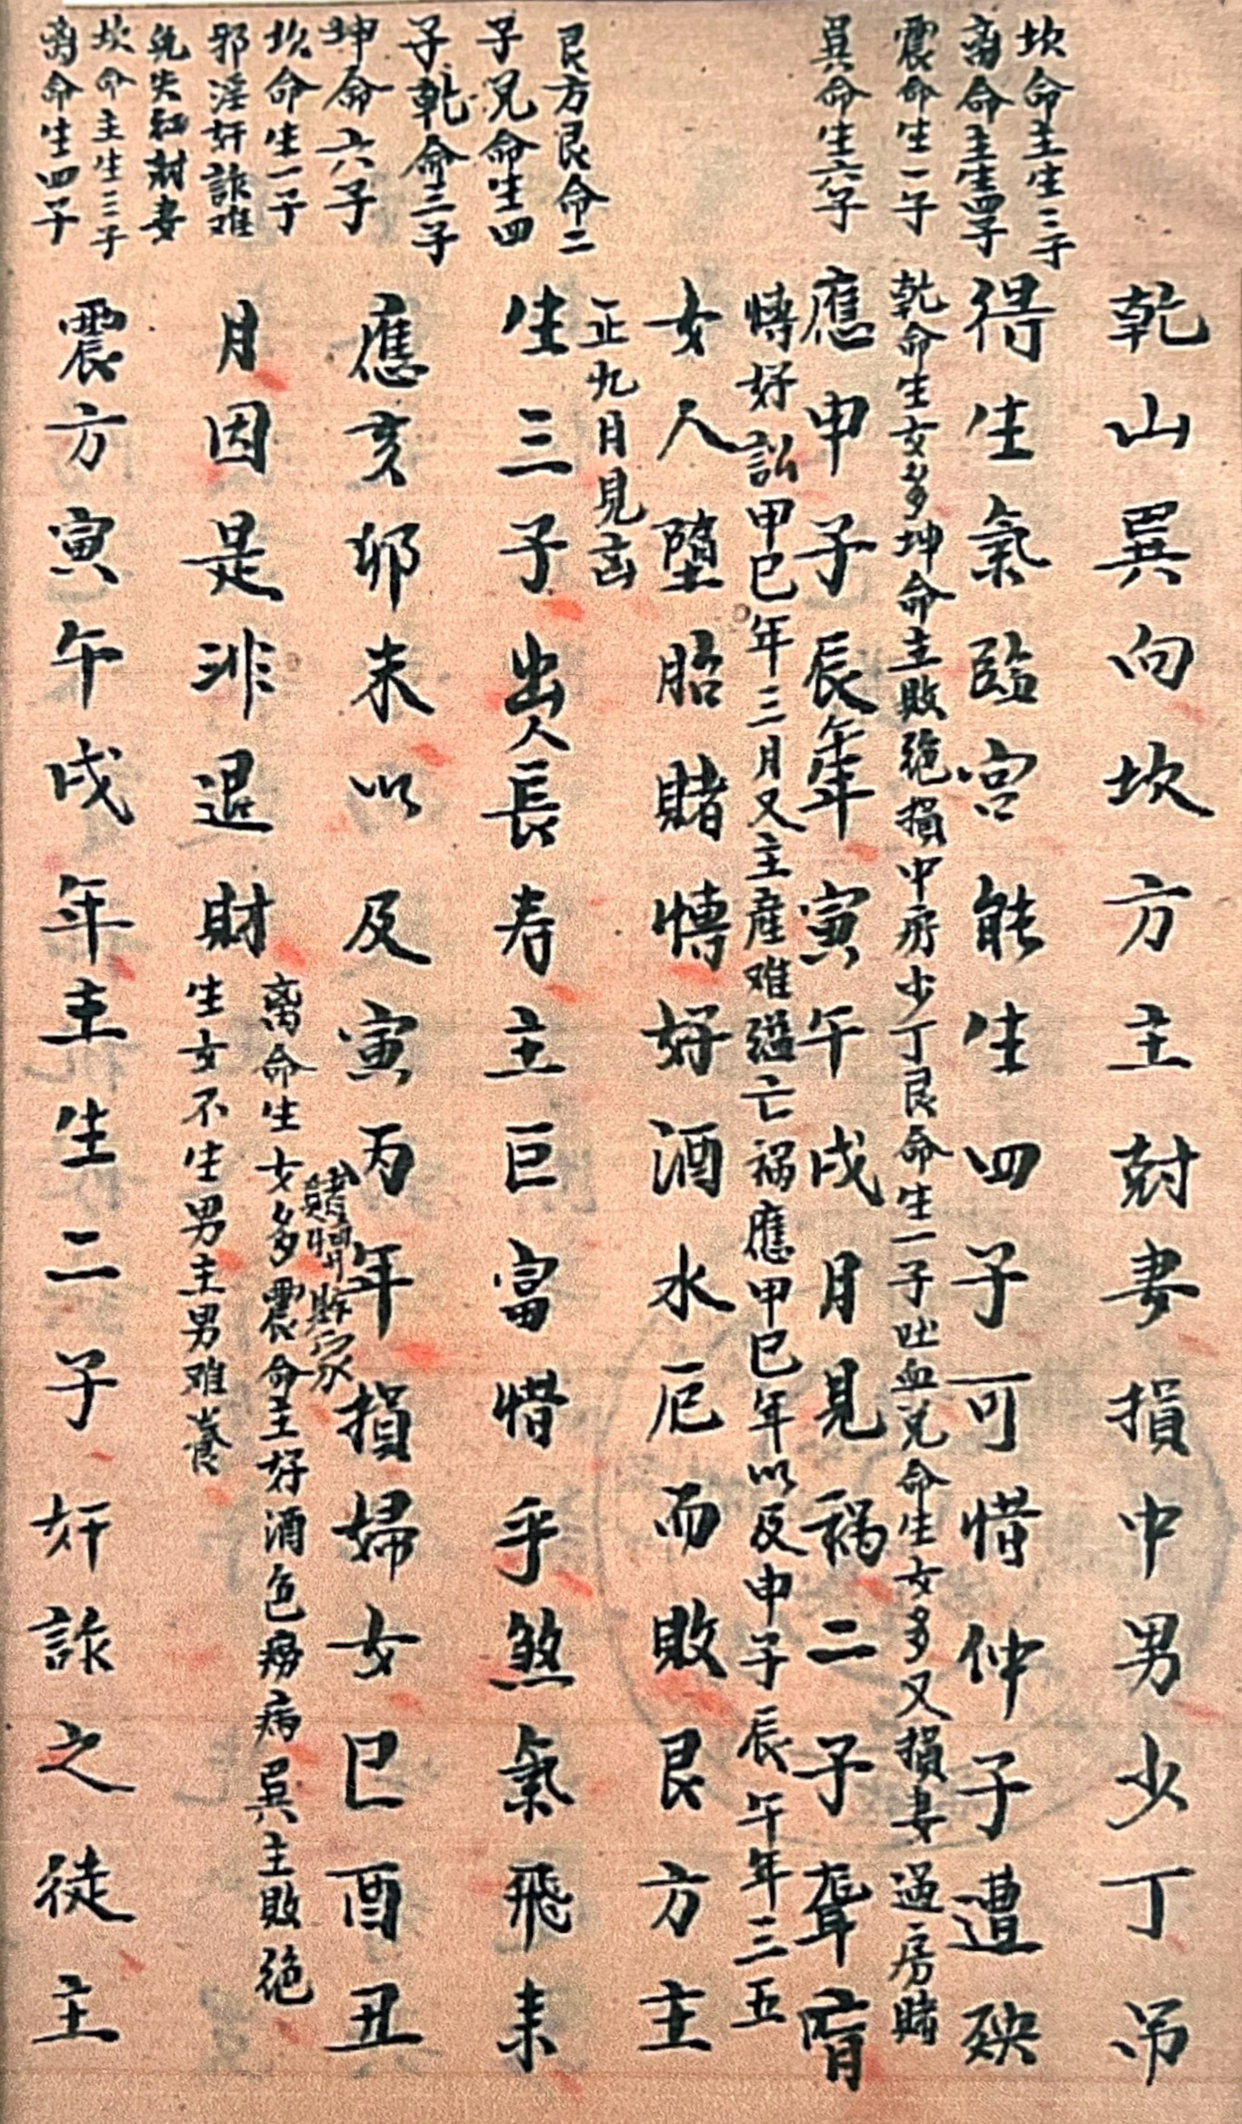 坎命主生三子
離命主生四子
震命生一子
巽命生六子
艮方艮命二
子兄命生四
子乾命三子
坤命六子
坎命生一子
邪淫奸詐难
免失紅尅妻
坎命主生三子
離命生四子
乾山巽向坎方主尅妻損中男少丁吊
得生氣臨宮能生四子可惜仲子遭殃
乾命生女多坤命主敗绝損中房少丁艮命生一子吐血兑命生女多又損妻過房賭
應申子辰年寅午戌月見禍二子聾盲
慱好訟甲巳年三月又主産难缢亡禍應甲巳年以及申子辰午年三五
女人墮胎賭慱好酒水厄而敗艮方主
正九月見凶
生三子出人長寿主巨富惜乎煞氣飛来
應亥卯未以及寅丙年損婦女巳酉丑
賭慱敗家
月因是非退財
离命生女多震命主好酒色癆病巽主敗绝
生女不生男主男难養
震方寅午戌年主生二子奸詐之徒主